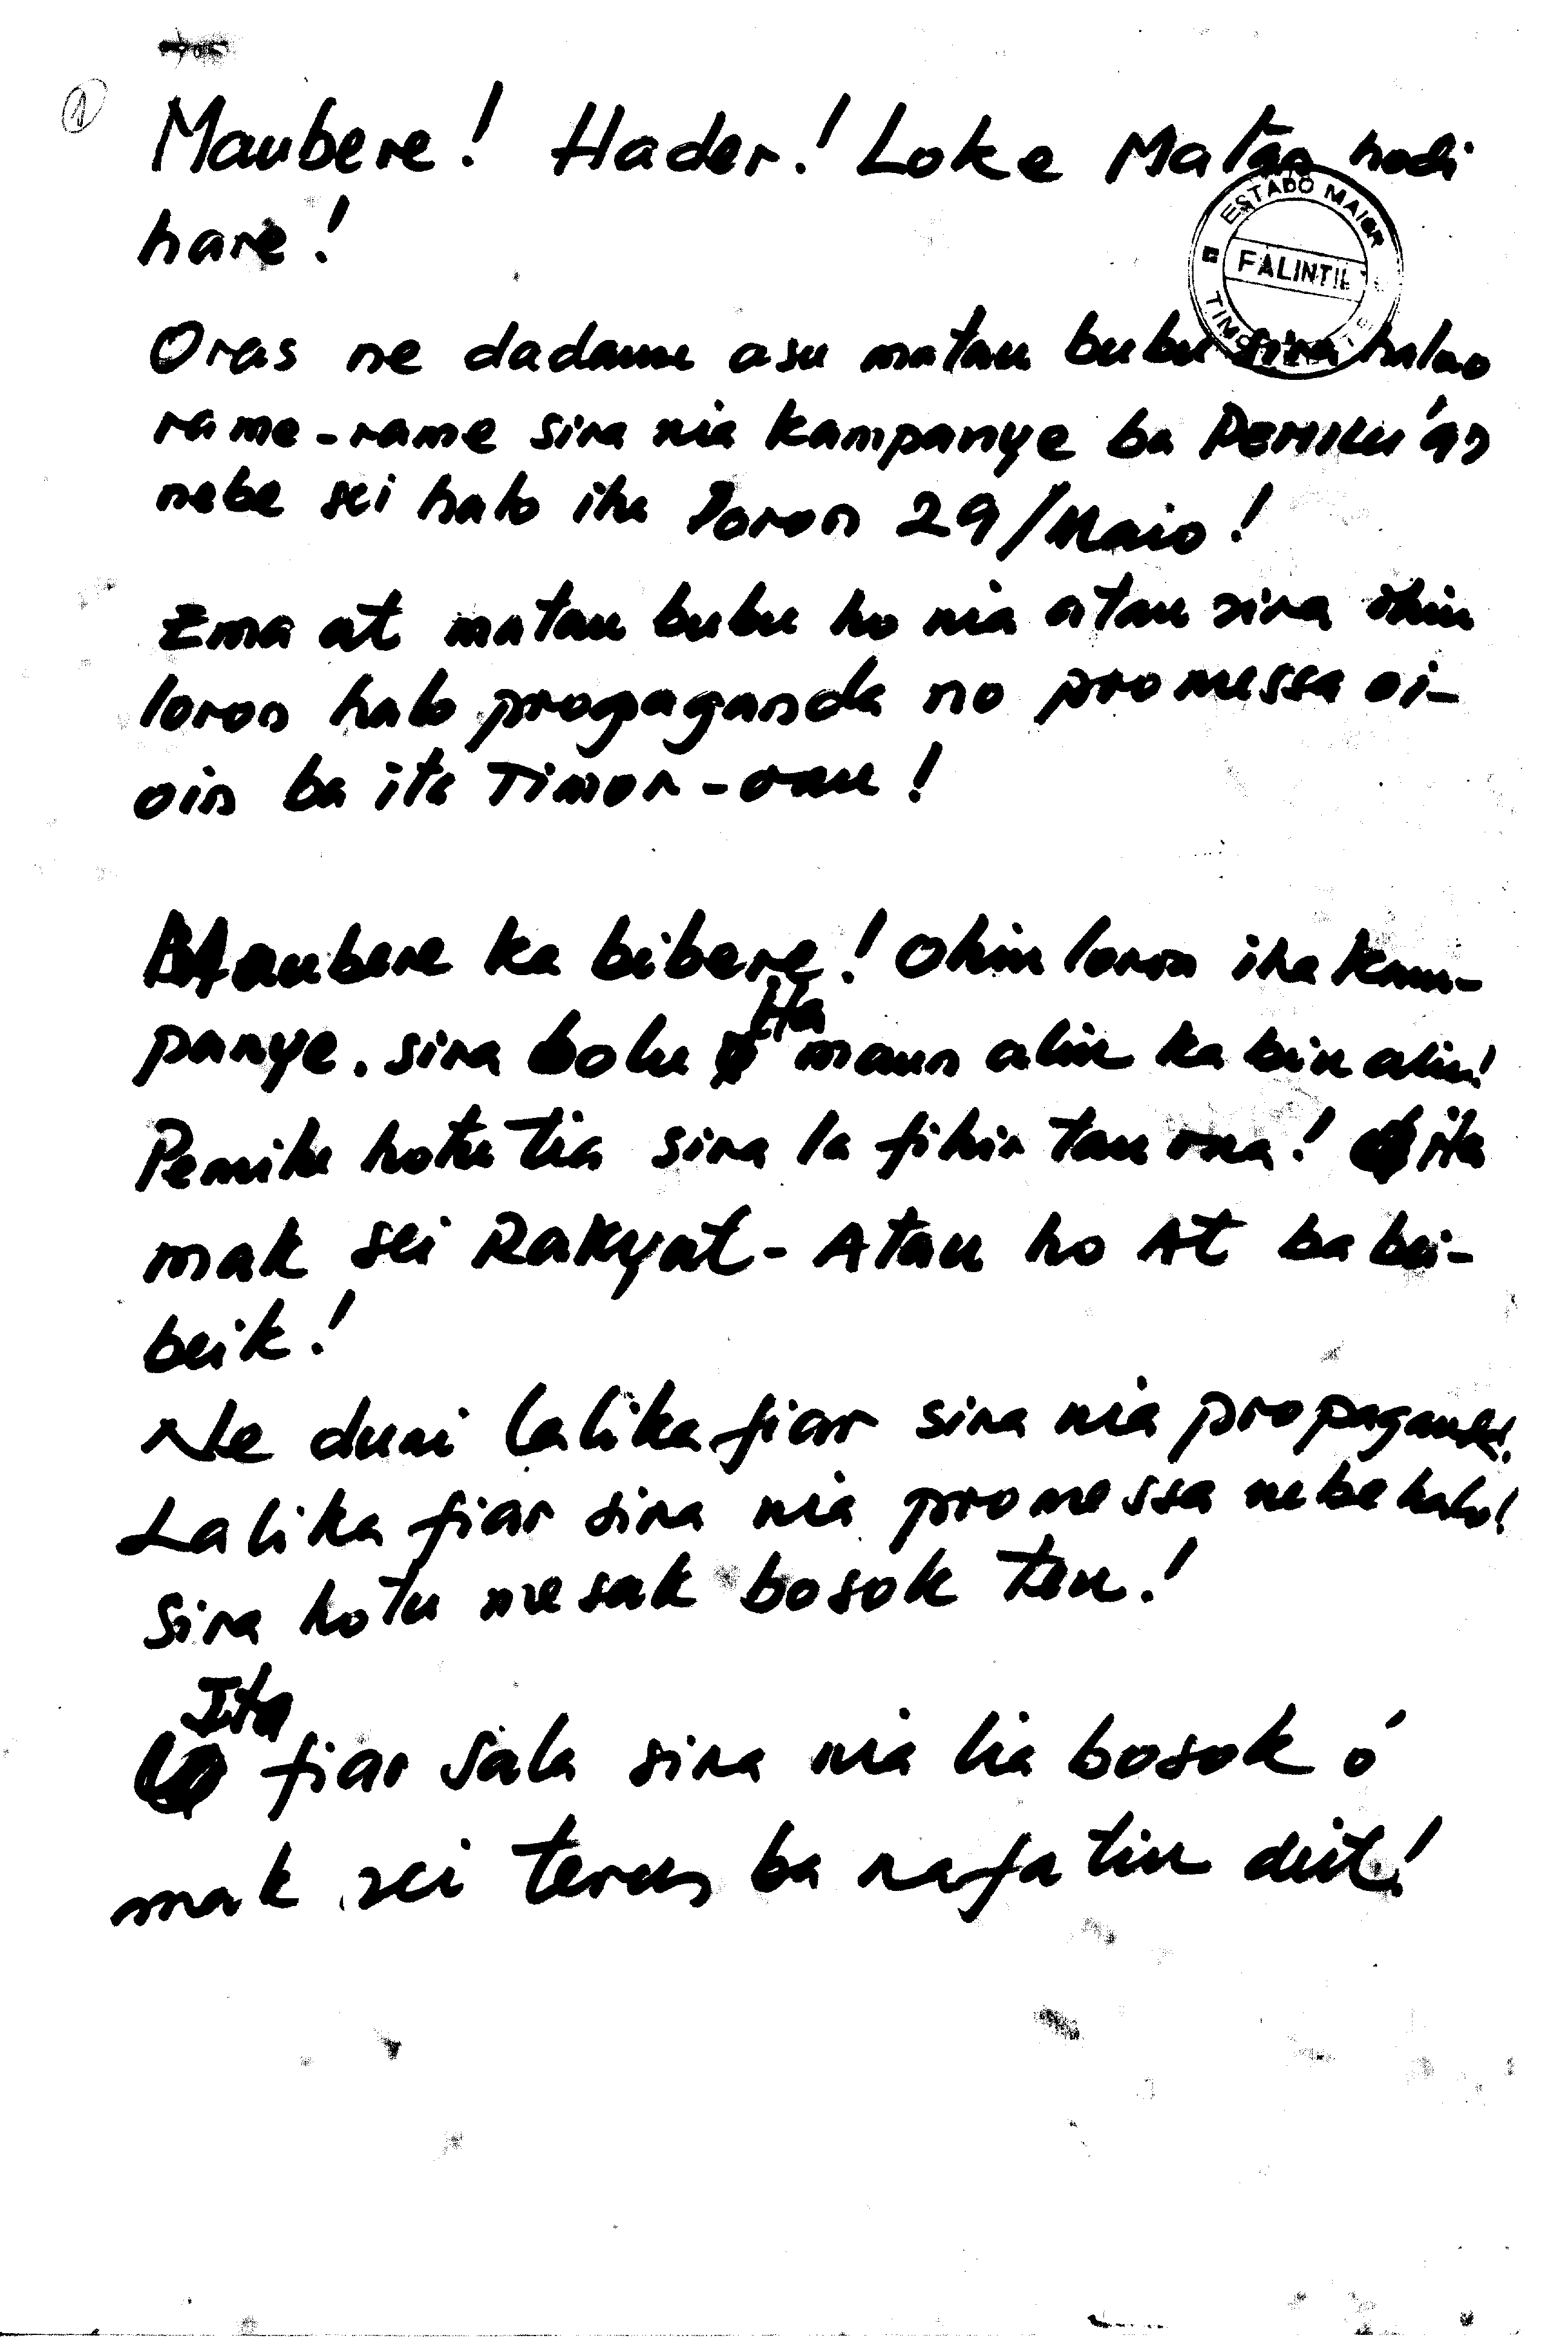 1
Maubere! Hader! Loke Matan hodi
hare!
ESTADO MAIOR
FALINTIL
Oras ne dadaun asu matan bubu sira halao
rame-rame sira nia kampanye ba PEMILU'an
nebe sei halo iha loron 29/Maio!
Ema at matan bubu ho nia atan sira ohin
loron halo propaganda no promessa oi-
oin ba ita Timor-oan!
Maubere ka bibere! Ohin loron iha kam-
panye. sira bolu Ita maun alin ka bin alin!
Pemilu hotu tia sira la fihir tan ona! ita
mak sei Rakyat - Atan ho At ba bei-
beik!
Ne duni lalika fiar sira nia propaganda!
Lalika fiar sira nia promessa nebe halo!
Sira hotu mesak bosok ten!
Ita fiar sala sira nia lia bosok ó
mak sei terus ba nafatin deit!